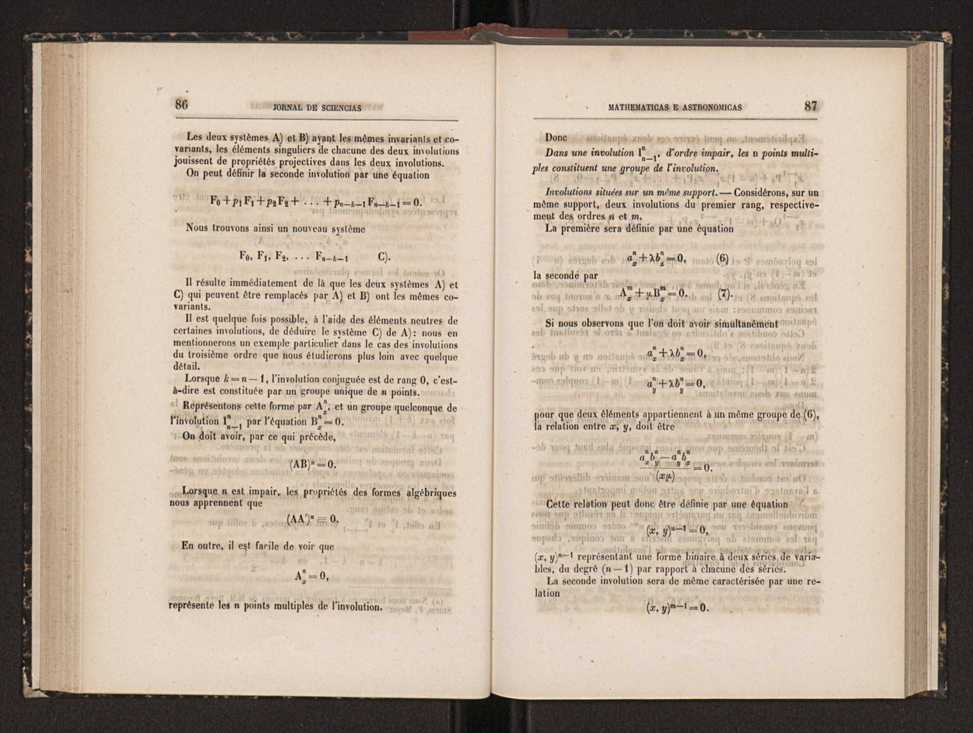 86 JORNAL DE SCIENCIAS
Les deux systèmes A) et B) ayant les mêmes invariants et co-
variants, les éléments singuliers de chacune des deux involutions
jouissent de propriétés projectives dans les deux involutions.
On peut définir la seconde involution par une équation
F₀ + p₁F₁ + p₂F₂ + . . . + pₙ₋ₖ₋₁Fₙ₋ₖ₋₁ = 0.
Nous trouvons ainsi un nouveau système
F₀, F₁, F₂, . . . Fₙ₋ₖ₋₁ C).
Il résulte immédiatement de là que les deux systèmes A) et
C) qui peuvent être remplacés par A) et B) ont les mêmes co-
variants.
Il est quelque fois possible, à l'aide des éléments neutres de
certaines involutions, de déduire le système C) de A): nous en
mentionnerons un exemple particulier dans le cas des involutions
du troisième ordre que nous étudierons plus loin avec quelque
détail.
Lorsque k = n — 1, l'involution conjuguée est de rang 0, c'est-
à-dire est constituée par un groupe unique de n points.
Représentons cette forme par Aₓⁿ, et un groupe quelconque de
l'involution Iₙ₋₁ⁿ par l'équation Bₓⁿ = 0.
On doit avoir, par ce qui précède,
(AB)ⁿ = 0.
Lorsque n est impair, les propriétés des formes algébriques
nous apprennent que
(AA')ⁿ = 0.
En outre, il est facile de voir que
Aₓⁿ = 0,
représente les n points multiples de l'involution.
MATHEMATICAS E ASTRONOMICAS 87
Donc
Dans une involution Iₙ₋₁ⁿ, d'ordre impair, les n points multi-
ples constituent une groupe de l'involution.
Involutions situées sur un même support. — Considérons, sur un
même support, deux involutions du premier rang, respective-
ment des ordres n et m.
La première sera définie par une équation
aₓⁿ + λbₓⁿ = 0, (6)
la seconde par
Aₓᵐ + μBₓᵐ = 0. (7).
Si nous observons que l'on doit avoir simultanément
aₓⁿ + λbₓⁿ = 0,
a_yⁿ + λb_yⁿ = 0,
pour que deux éléments appartiennent à un même groupe de (6),
la relation entre x, y, doit être
(aₓⁿb_yⁿ — a_yⁿbₓⁿ) / (xy) = 0.
Cette relation peut donc être définie par une équation
(x, y)ⁿ⁻¹ = 0,
(x, y)ⁿ⁻¹ représentant une forme binaire à deux séries de varia-
bles, du degré (n — 1) par rapport à chacune des séries.
La seconde involution sera de même caractérisée par une re-
lation
(x, y)ᵐ⁻¹ = 0.